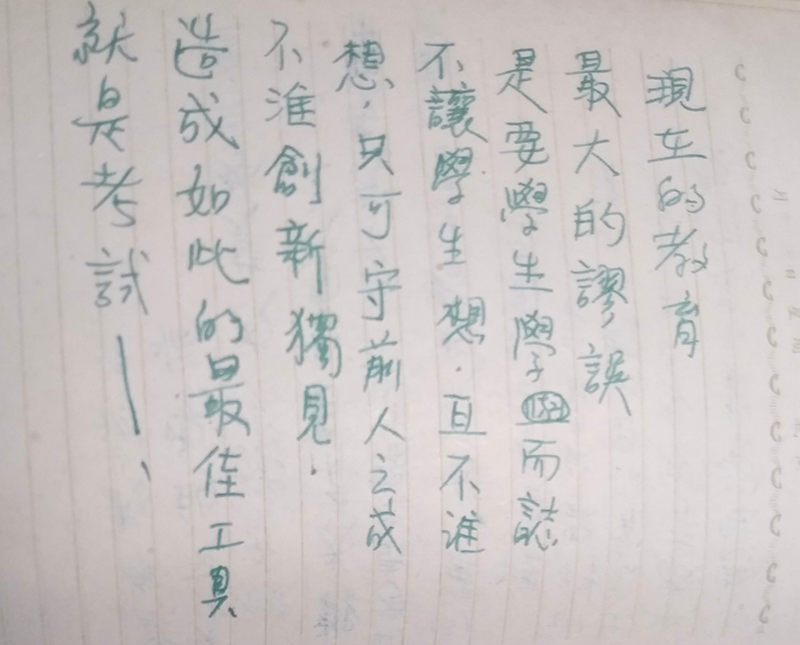 現在的教育
最大的謬誤
是要學生學而誌
不讓學生想．且不准
想，只可守前人之成
不准創新獨見．
造成如此的最佳工具
就是考試——、